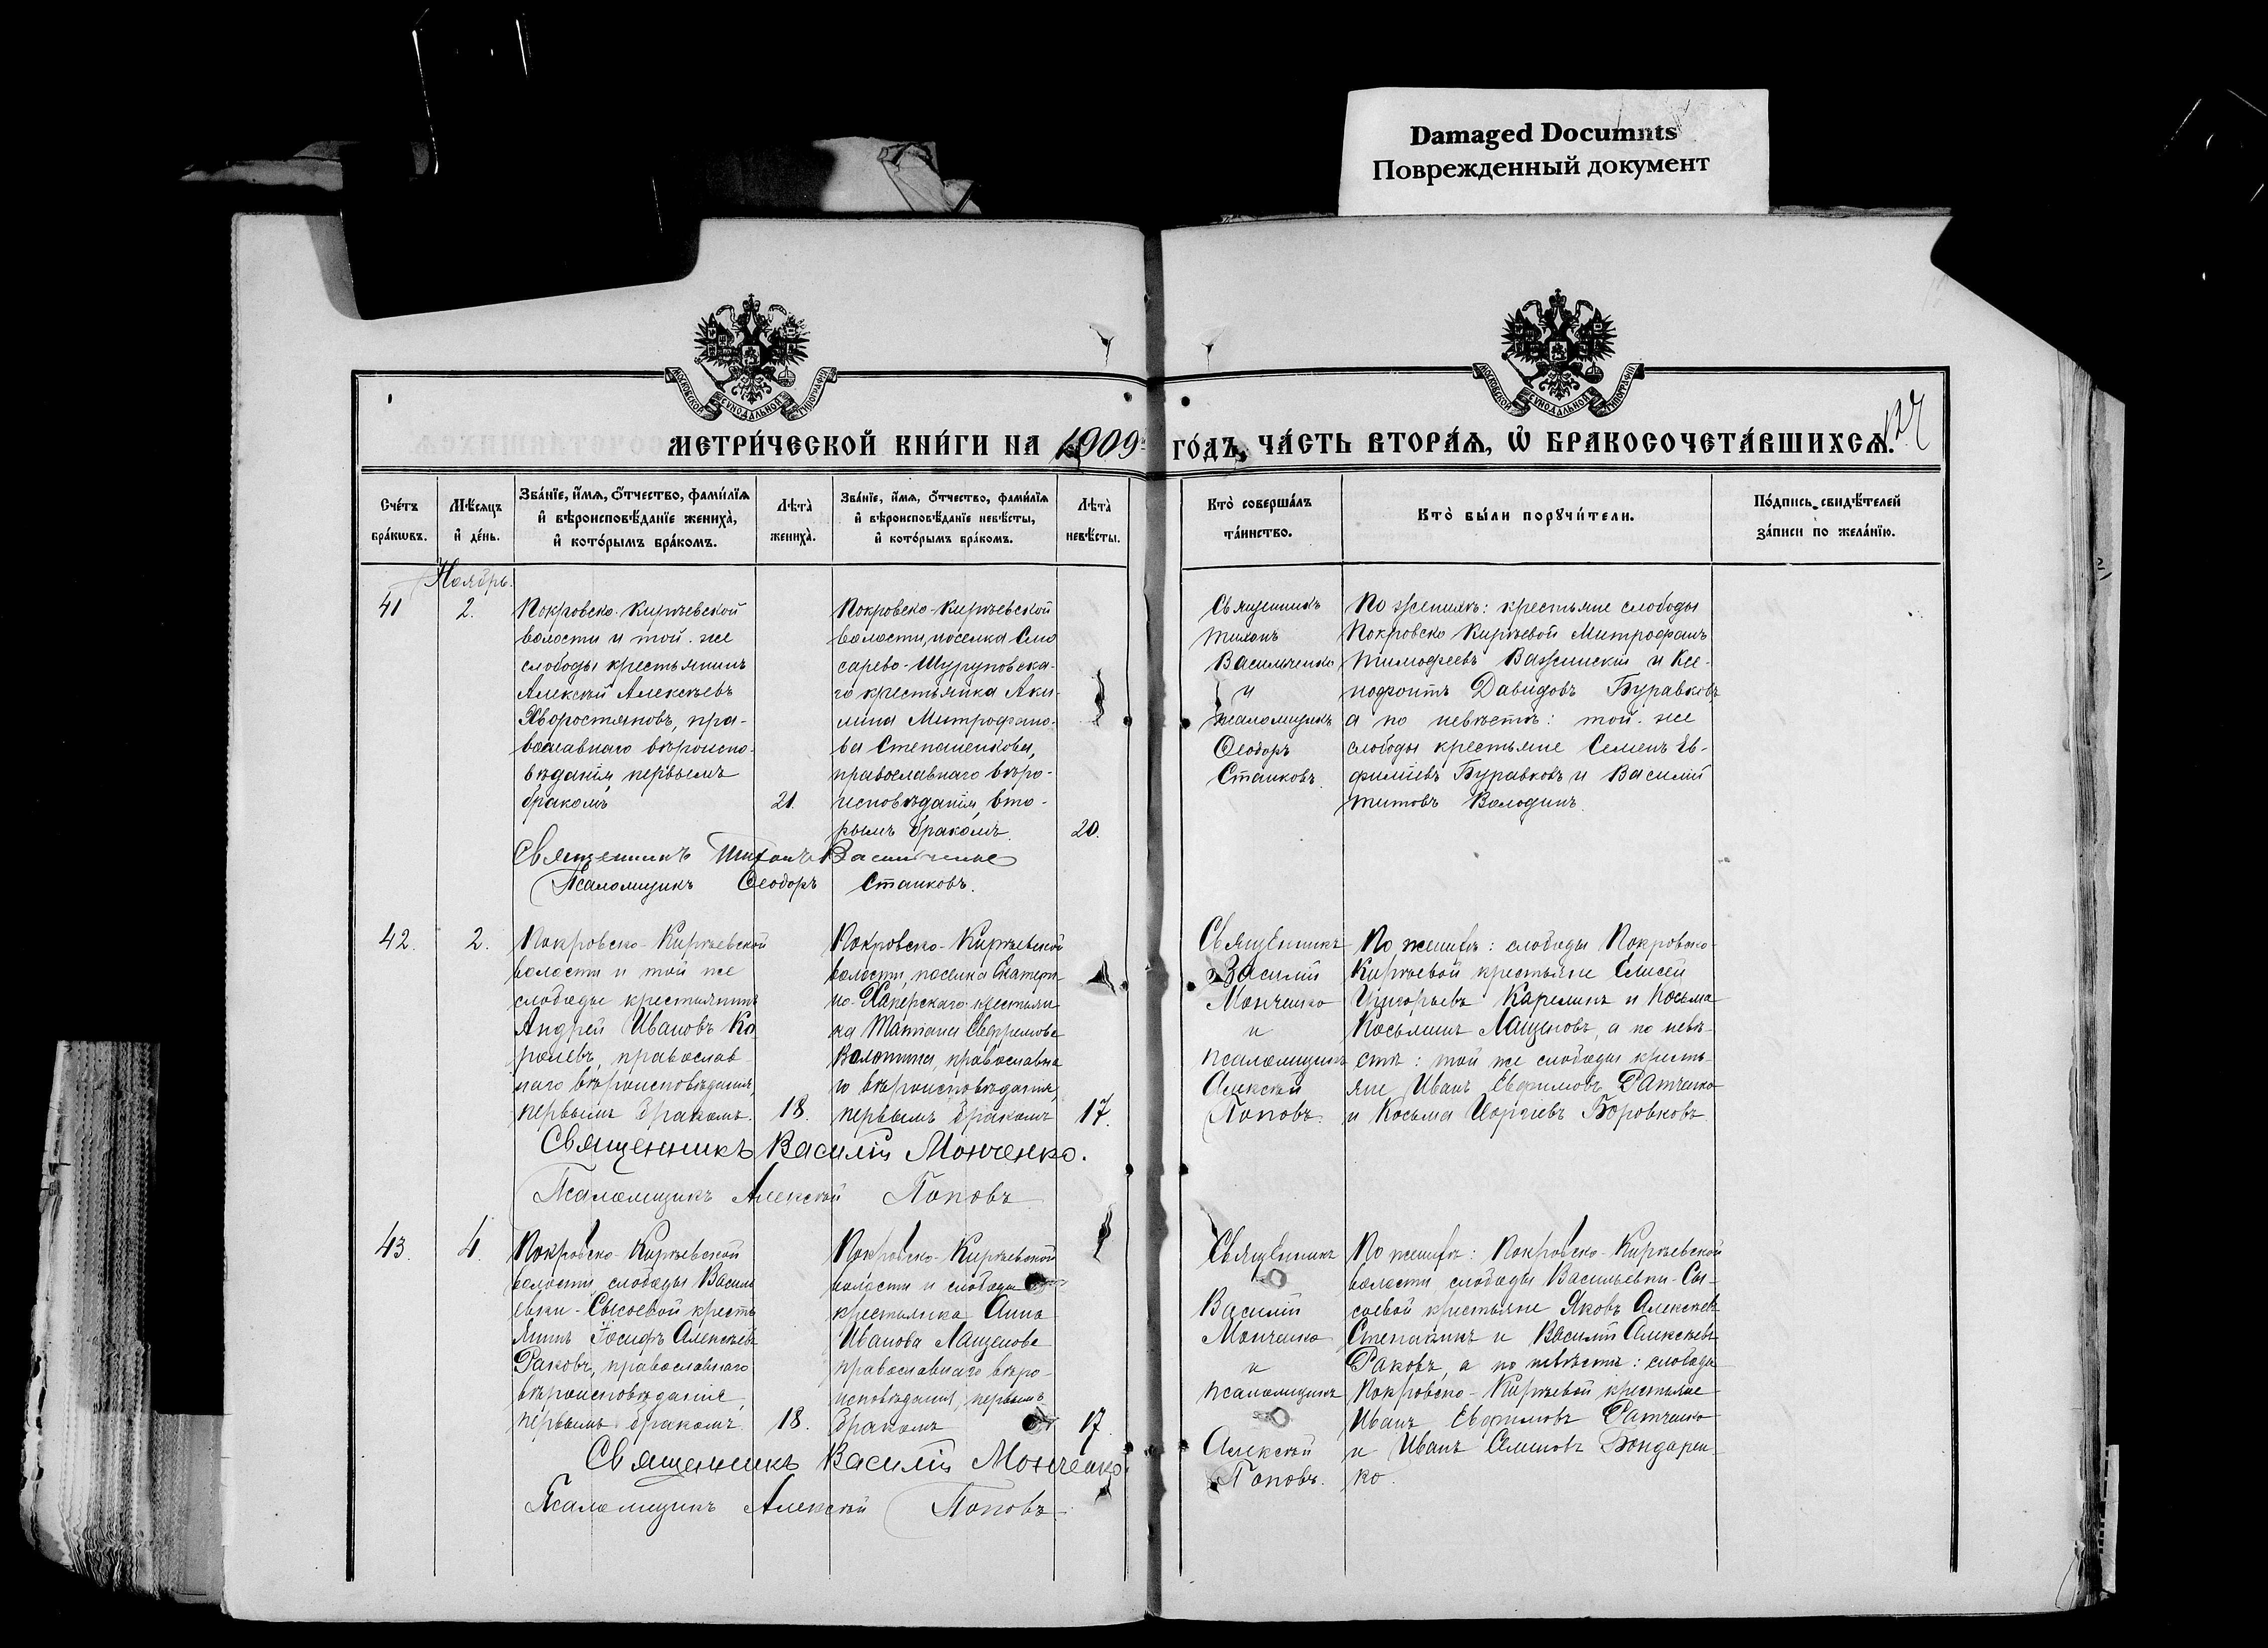 Damaged Documnts
Поврежденный документ
МОСКОВСКОЙ СѴНОДАЛЬНОЙ ТИПОГРАФІИ
МОСКОВСКОЙ СѴНОДАЛЬНОЙ ТИПОГРАФІИ
МЕТРИ́ЧЕСКОЙ КНИ́ГИ НА 1909 ГО́ДЪ, ЧА́СТЬ ВТОРА́Ѧ, Ѽ БРАКОСОЧЕТА́ВШИХСѦ.
127
Сче́тъ бра́кѡвъ.
Мѣ́сѧцъ и҆ де́нь.
Зва́нїе, и҆́мѧ, ѻ҆́тчество, фами́лїѧ
и҆ вѣроисповѣ́данїе жениха̀,
и҆ кото́рымъ бра́комъ.
Лѣта̀ жениха̀.
Зва́нїе, и҆́мѧ, ѻ҆́тчество, фами́лїѧ
и҆ вѣроисповѣ́данїе невѣ́сты,
и҆ кото́рымъ бра́комъ.
Лѣта̀ невѣ́сты.
Кто̀ соверша́лъ та́инство.
Кто̀ бы́ли порꙋчи́тели.
По́дпись свидѣ́телей за́писи по жела́нїю.
Ноябрь.
41
2.
Покровско-Кирѣевской
волости и той-же
слободы крестьянинъ
Алексѣй Алексѣевъ
Хворостяновъ, пра-
вославнаго вѣроиспо-
вѣданія, первымъ
бракомъ
21.
Покровско-Кирѣевской
волости, поселка Слю
сарево-Шурупов­ска-
го крестьянка Аки-
лина Митрофано-
ва Степаненкова,
православнаго вѣро-
исповѣданія, вто-
рымъ бракомъ.
20.
Священникъ
Тихонъ
Васильченко
и
псаломщикъ
Ѳеодоръ
Станковъ.
По женихѣ: крестьяне слободы
Покровско Кирѣевой Митрофанъ
Тимофеевъ Важинскій и Ксе-
нофонтъ Давидовъ Буравковъ,
а по невѣстѣ: той-же
слободы крестьяне Семенъ Ев-
фиміевъ Буравковъ и Василій
Титовъ Володинъ.
Священникъ Тихонъ Васильченко
Псаломщикъ Ѳеодоръ Станковъ.
42.
2.
Покровско-Кирѣевской
волости и той же
слободы крестьянинъ
Андрей Ивановъ Ко
ролевъ, православ-
наго вѣроисповѣданія,
первымъ бракомъ.
18.
Покровско-Кирѣевской
волости, поселка Екатери-
но-Хаперскаго крестьян
ка Татіана Евфремова
православна
го вѣроисповѣданія,
первымъ бракомъ
17.
Священникъ
Василій
Монченко
и
псаломщикъ
Алексѣй
Поповъ.
По женихѣ: слободы Покровско-
Кирѣевой крестьяне Елисей
Григорьевъ Карелинъ и Косьма
Косьминъ Лащеновъ, а по невѣ-
стѣ: той же слободы кресть-
яне Иванъ Евфимовъ Ратченко
и Косьма Боровковъ.
Священникъ Василій Монченко.
Псаломщикъ Алексѣй Поповъ
43.
4.
Покровско-Кирѣевской
волости, слободы Василь
евки-Сысоевой кресть
янинъ Іосифъ Алексѣевъ
Раковъ, православнаго
вѣроисповѣданія,
первымъ бракомъ.
18.
Покровско-Кирѣевской
волости и слободы
крестьянка Анна
Иванова Лащенова
православнаго вѣро-
исповѣданія, первымъ
бракомъ
17.
Священникъ
Василій
Монченко
и
псаломщикъ
Алексѣй
Поповъ.
По женихѣ: Покровско-Кирѣевской
волости слободы Васильевки-Сы-
соевой крестьяне Яковъ Алексѣевъ
Степанинъ и Василій Алексѣевъ
Раковъ, а по невѣстѣ: слободы
Покровско-Кирѣевой крестьяне
Иванъ Евфимовъ Ратченко
и Иванъ Семеновъ Бондарен-
ко.
Священникъ Василій Монченко.
Псаломщикъ Алексѣй Поповъ.